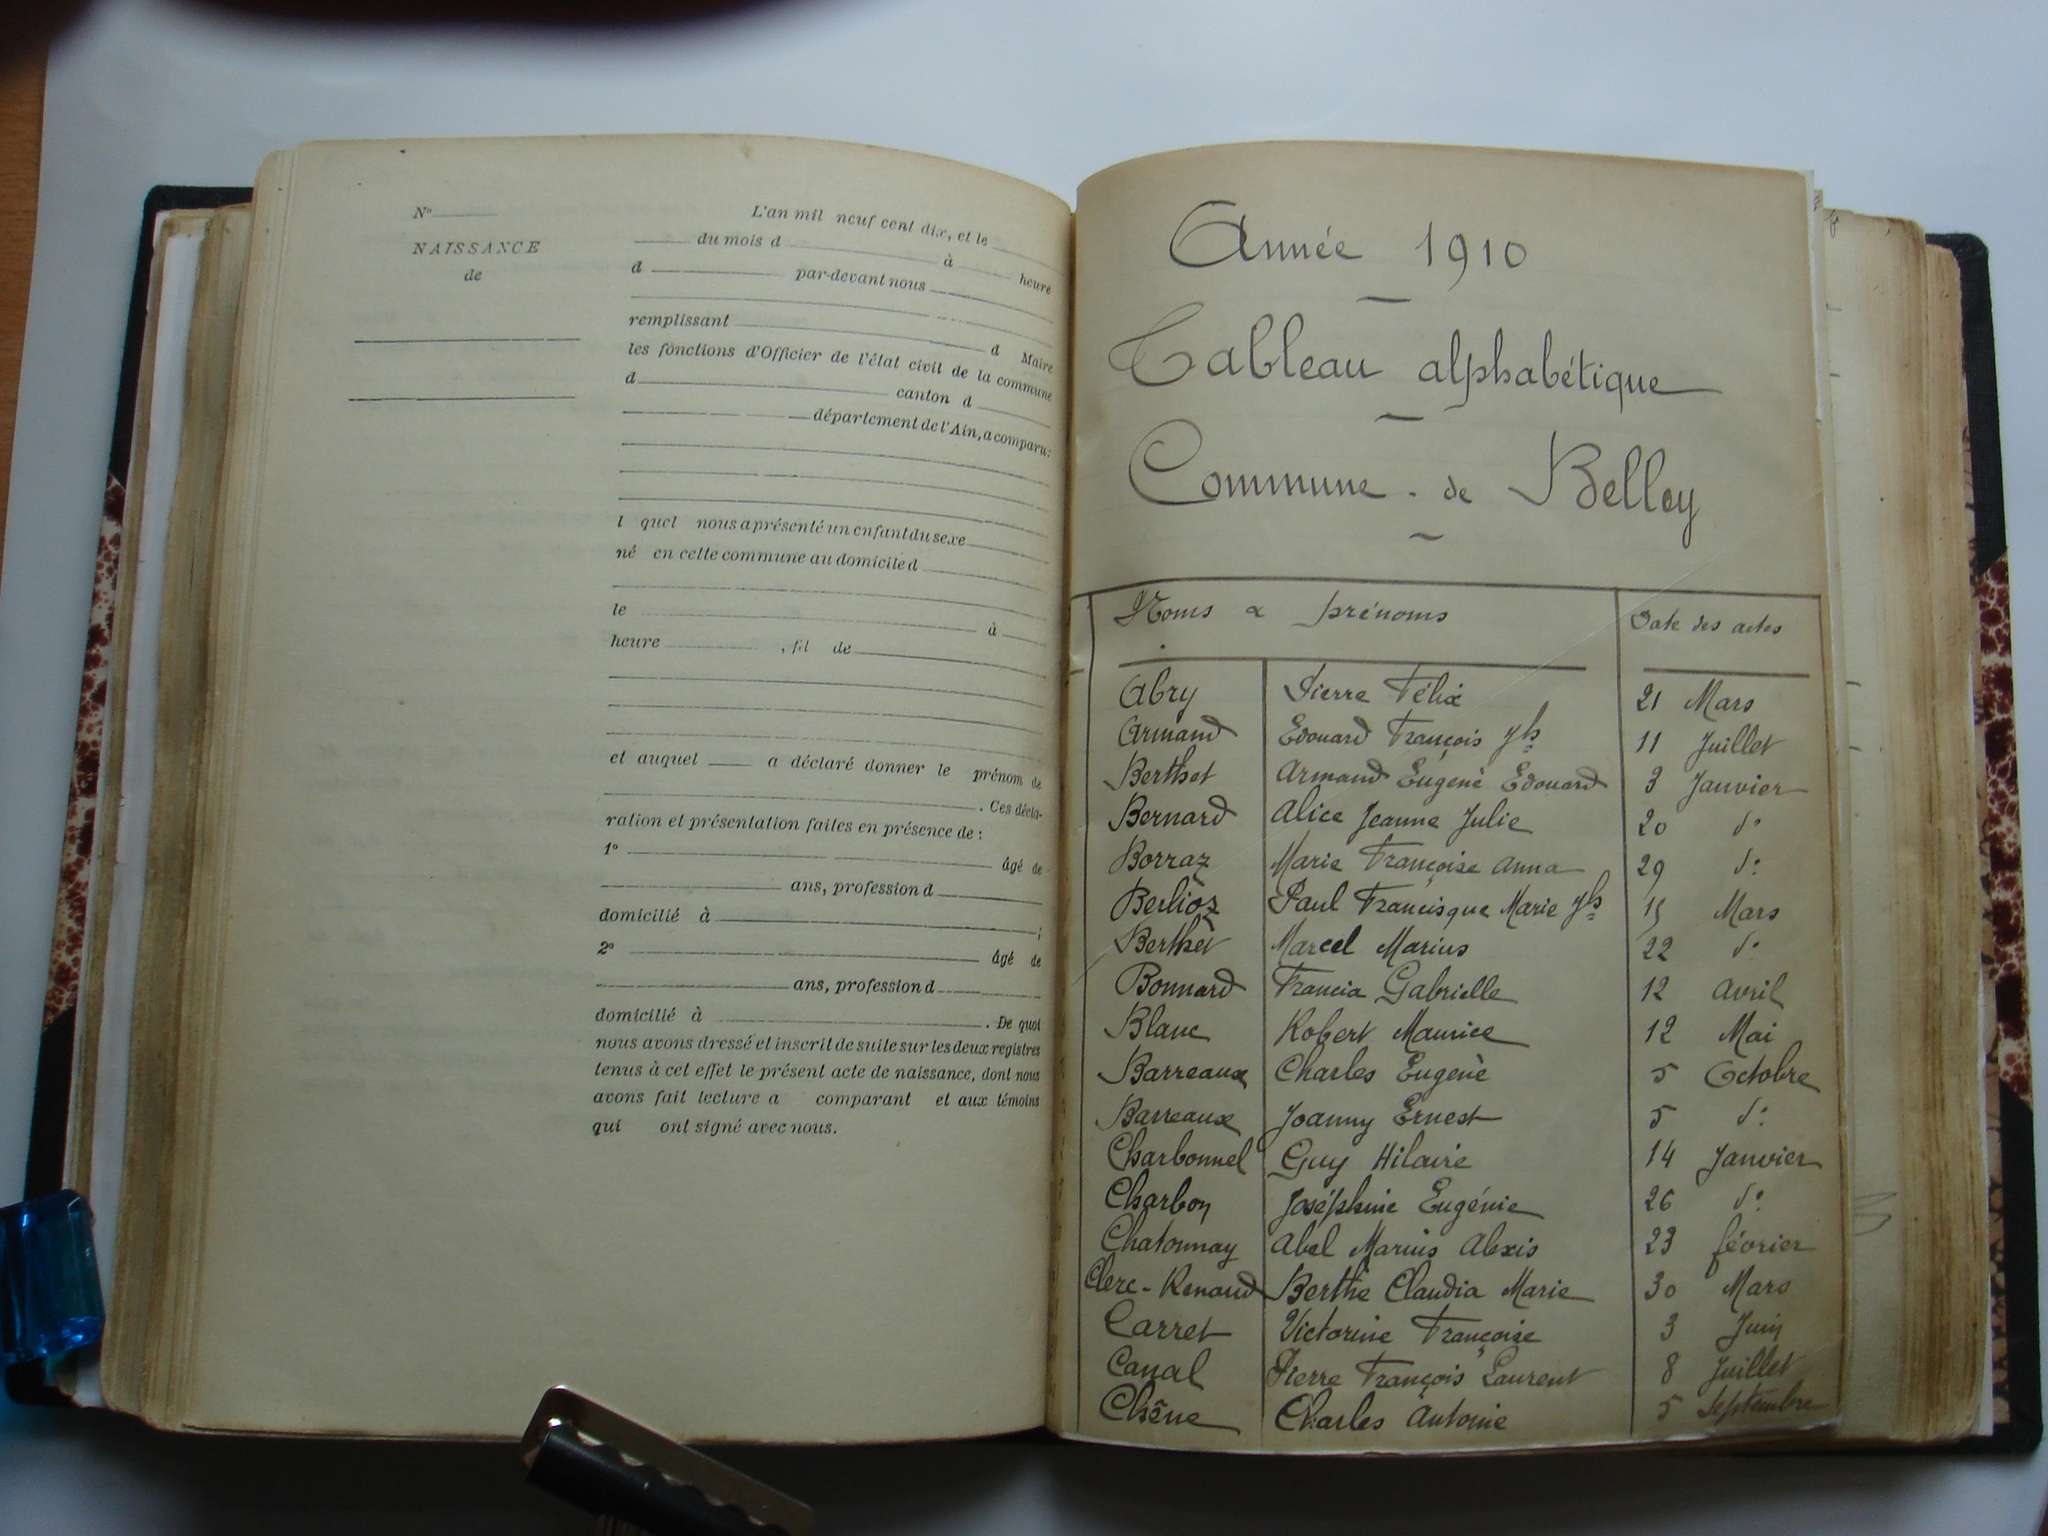 N°
NAISSANCE
de
L'an mil neuf cent dix, et le
du mois d à heure
d par-devant nous
remplissant d Maire
les fonctions d'Officier de l'état civil de la commune
d canton d
département de l'Ain, a comparu:
l quel nous a présenté un enfant du sexe
né en cette commune au domicile d
le à
heure , fil de
et auquel a déclaré donner le prénom de
. Ces décla-
ration et présentation faites en présence de :
1° âgé de
ans, profession d
domicilié à ;
2° âgé de
ans, profession d
domicilié à . De quoi
nous avons dressé et inscrit de suite sur les deux registres
tenus à cet effet le présent acte de naissance, dont nous
avons fait lecture a comparant et aux témoins
qui ont signé avec nous.
Année 1910
Tableau alphabétique
Commune - de Belley
Noms & prénoms Date des actes
Abry Pierre Félix 21 Mars
Armand Edouard François 11 Juillet
Berthet Armand Eugène Edouard 3 Janvier
Bernard Alice Jeanne Julie 20 do
Borraz Marie Françoise Anna 29 do
Berlioz Paul Francisque Marie 15 Mars
Berthet Marcel Marius 22 do
Bonnard Francia Gabrielle 12 Avril
Blanc Robert Maurice 12 Mai
Barreaux Charles Eugène 5 Octobre
Barreaux Joanny Ernest 5 do
Charbonnel Guy Hilaire 14 Janvier
Charbon Joséphine Eugénie 26 do
Chatonnay Abel Marius Alexis 23 février
Clerc-Renaud Berthe Claudia Marie 30 Mars
Carret Victorine Françoise 3 Juin
Canal Pierre François Laurent 8 Juillet
Chêne Charles Antoine 5 Septembre